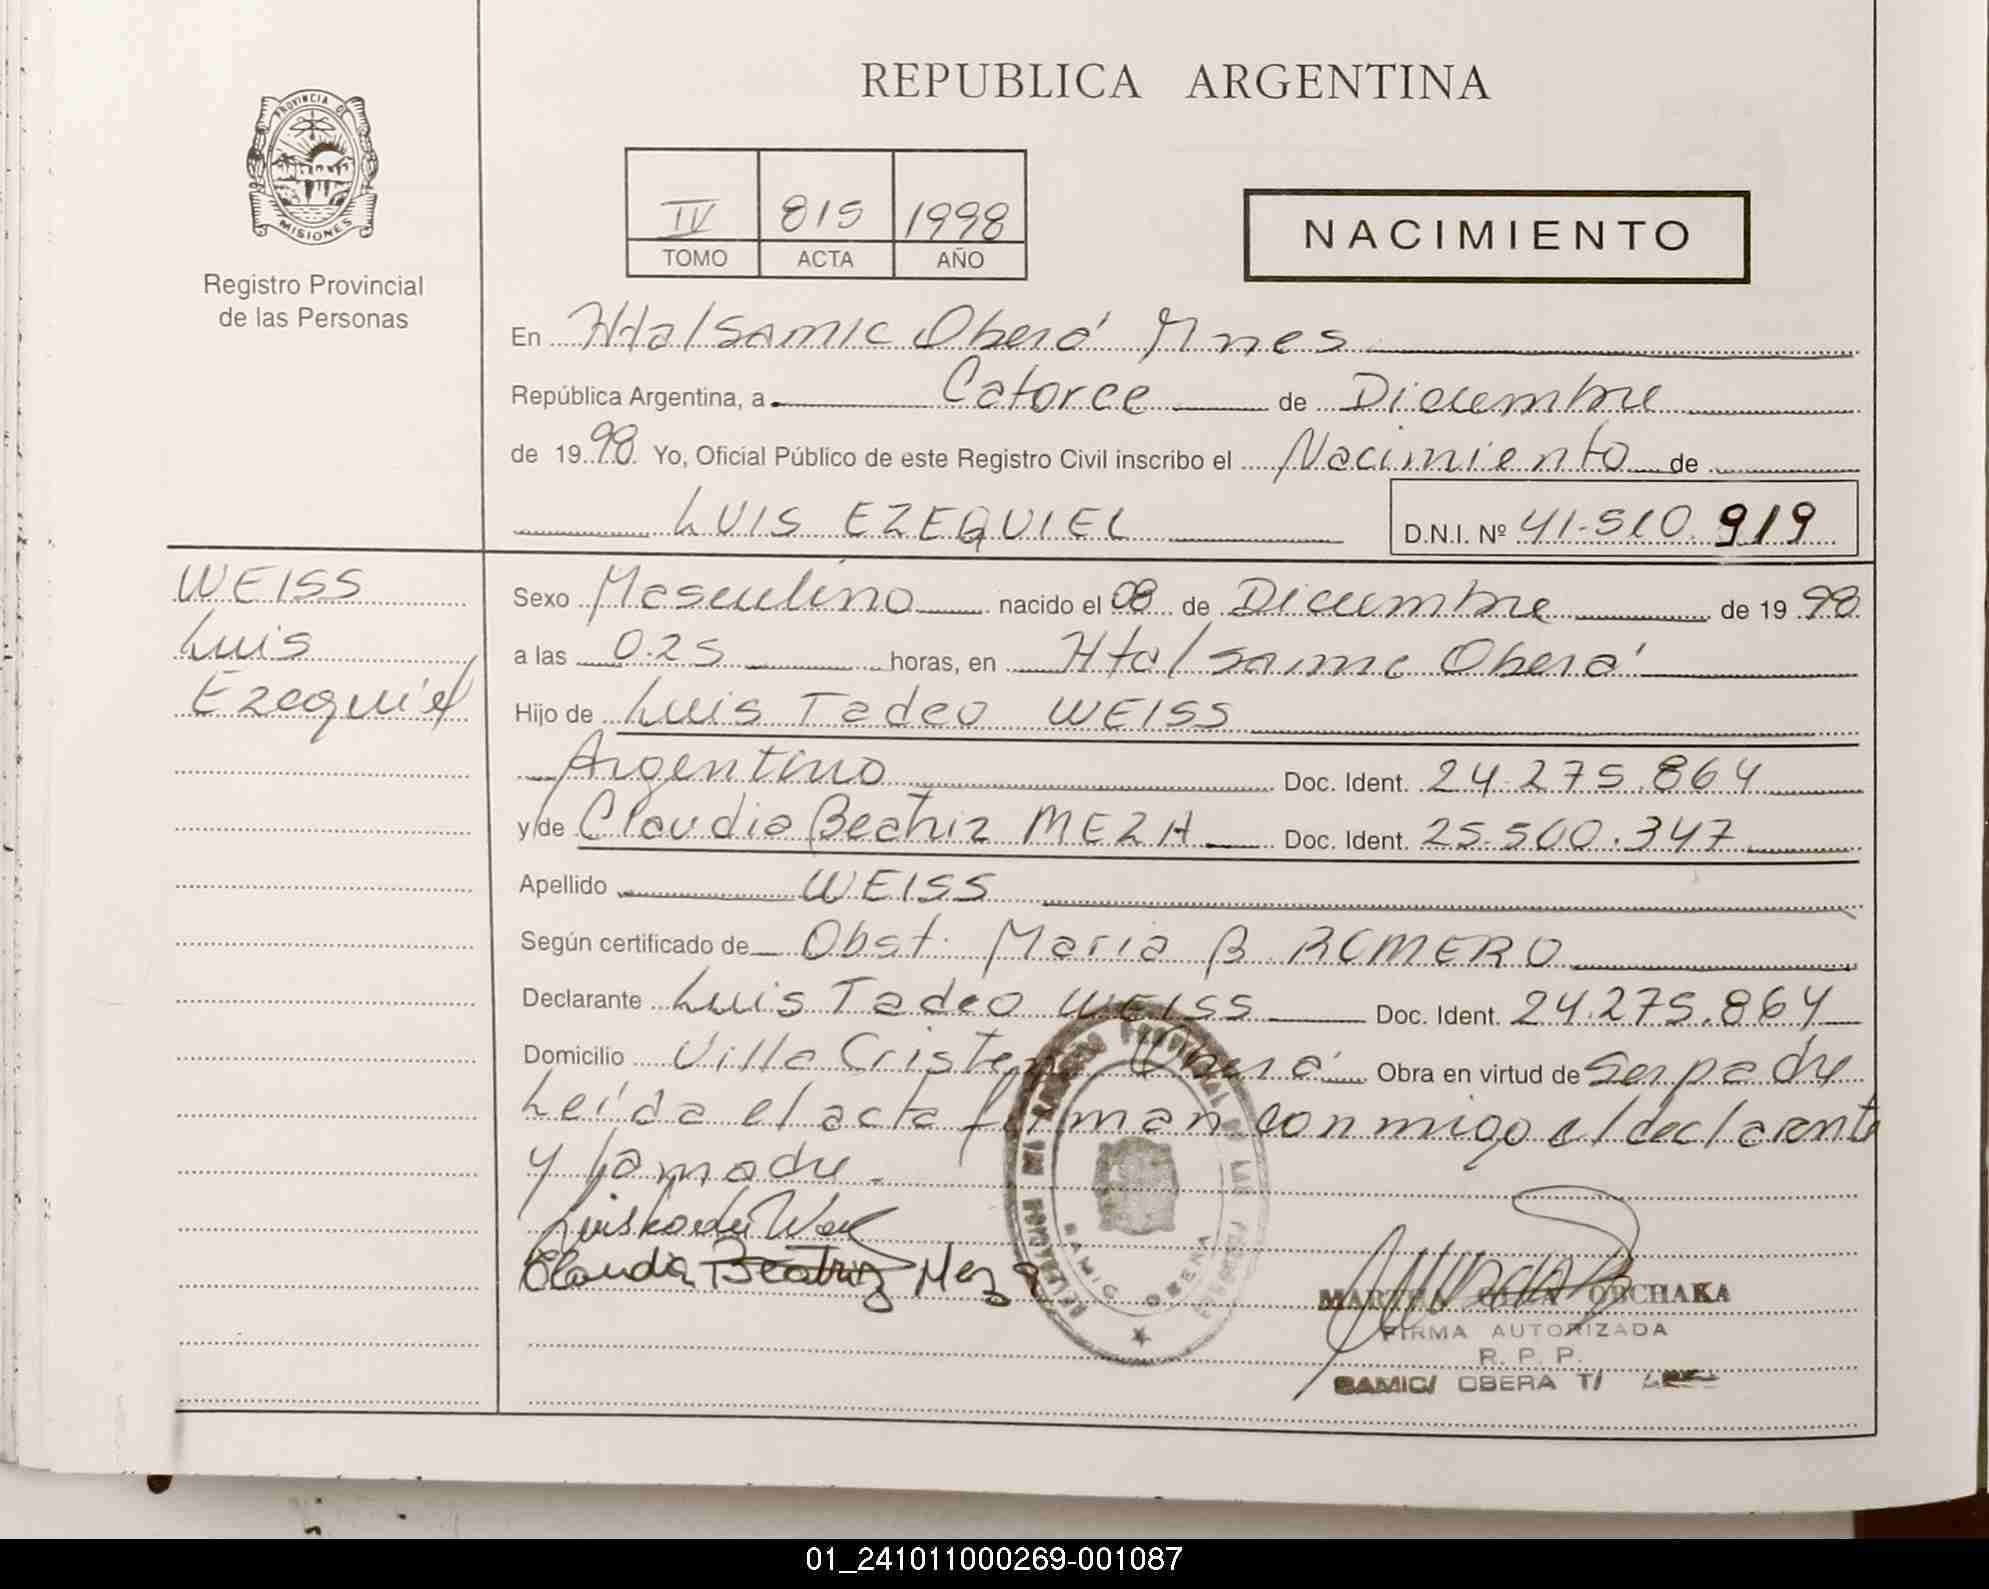 REPUBLICA ARGENTINA
PROVINCIA DE
MISIONES
Registro Provincial
de las Personas
IV 815 1998
TOMO ACTA AÑO
NACIMIENTO
En Htal Samic Oberá Mnes
República Argentina, a Catorce de Diciembre
de 1998 Yo, Oficial Público de este Registro Civil inscribo el Nacimiento de
LUIS EZEQUIEL D.N.I. Nº 41.510.919
WEISS
Luis
Ezequiel
Sexo Masculino nacido el 08 de Diciembre de 1998
a las 0.25 horas, en Htal Samic Oberá
Hijo de Luis Tadeo WEISS
Argentino Doc. Ident. 24.275.864
y de Claudia Beatriz MEZA Doc. Ident. 25.500.347
Apellido WEISS
Según certificado de Obst. Maria B. ROMERO
Declarante Luis Tadeo WEISS Doc. Ident. 24.275.864
Domicilio Villa Cristen Oberá Obra en virtud de Ser padre
Leída el acta firman conmigo el declarante
y la madre.
Claudia Beatriz Meza
SAMIC OBERA
MARTHA ORCHAKA
FIRMA AUTORIZADA
R. P. P.
SAMIC/ OBERA T/
01_241011000269-001087